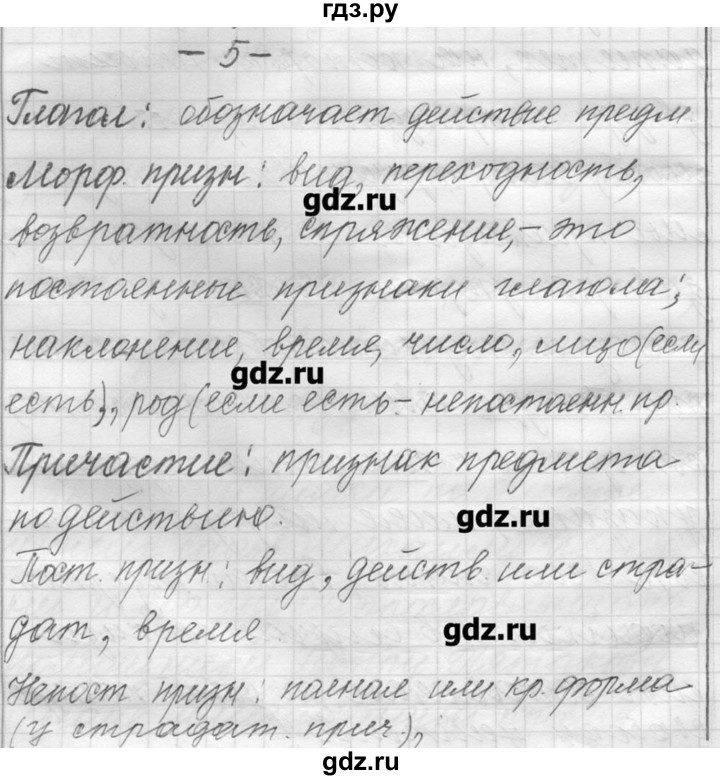 гдз.ру
- 5 -
Глагол: обозначает действие предм.
Морф. призн: вид, переходность,
gdz.ru
возвратность, спряжение, - это
постоянные признаки глагола;
наклонение, время, число, лицо (если
gdz.ru
есть), род (если есть - непостоянн. пр.
Причастие: признак предмета
по действию.
gdz.ru
Пост. призн: вид, действ. или стра-
дат, время
gdz.ru
Непост. призн: полная или кр. форма
(у страдат. прич.),
gdz.ru